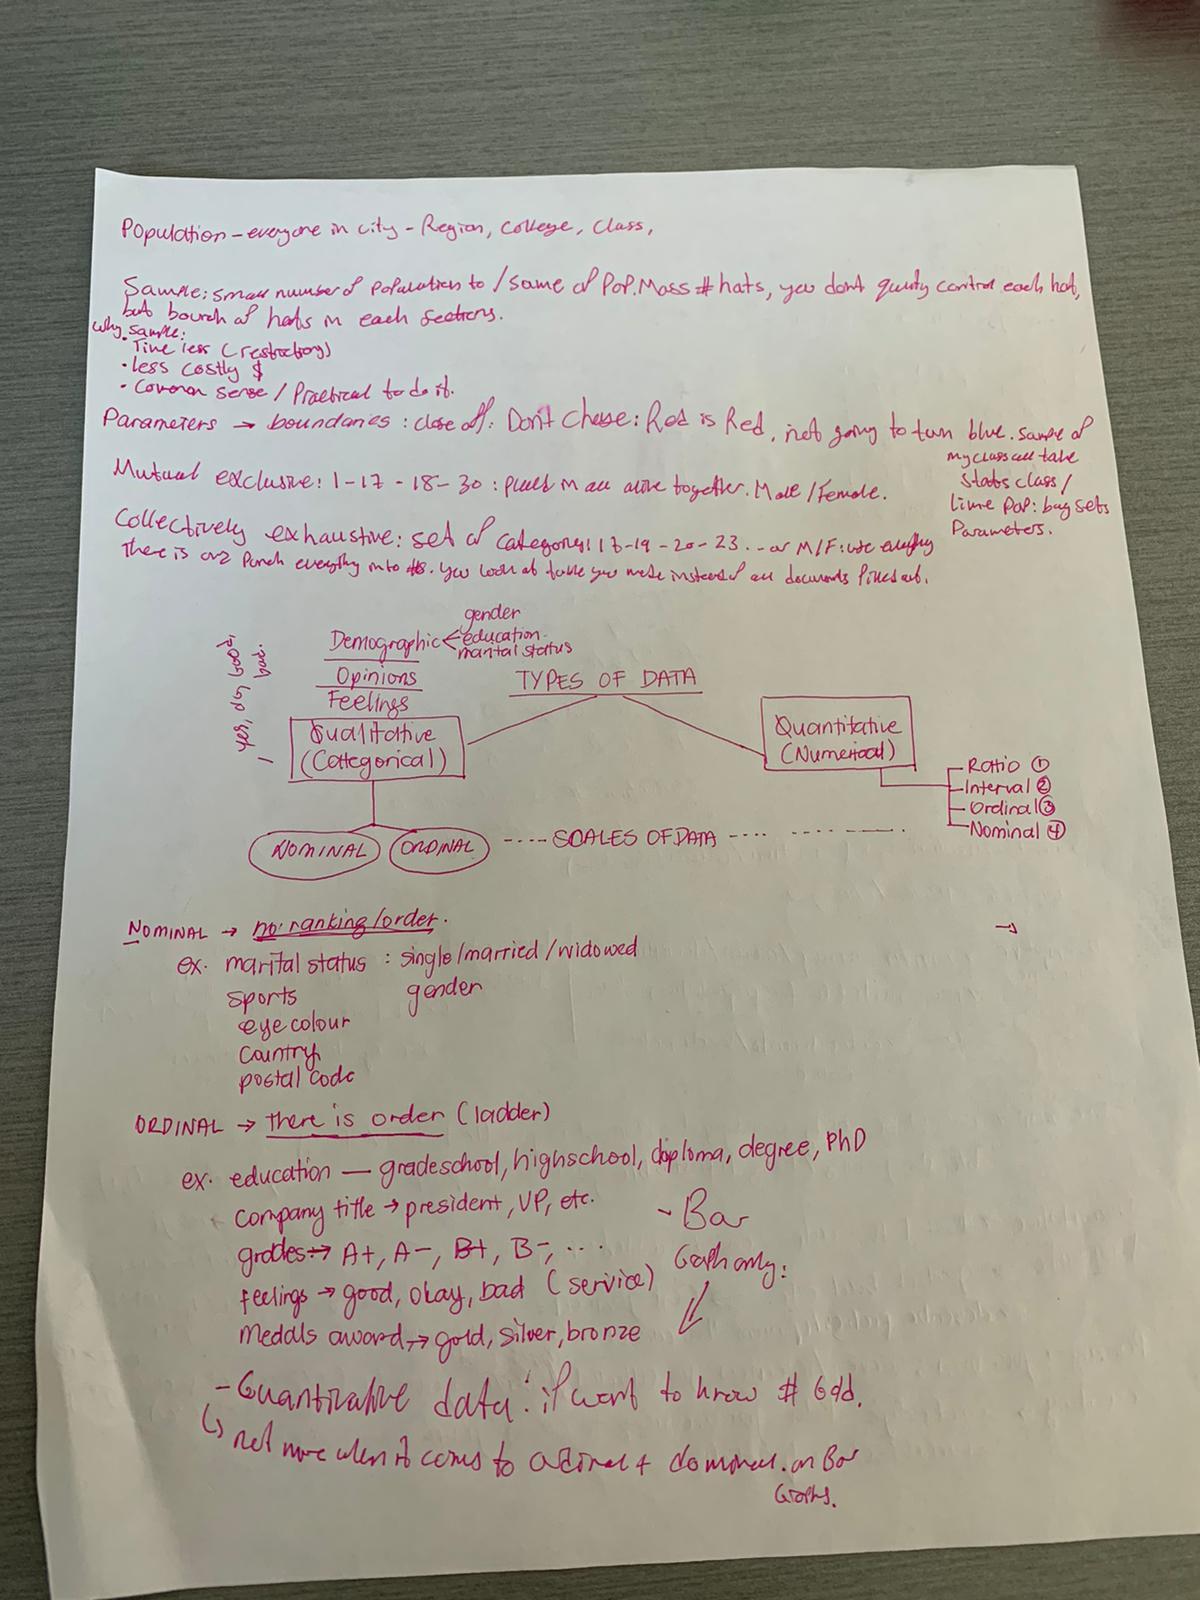 Population - everyone in city - Region, College, Class,
Sample: small number of population to / same of Pop. Mass # hats, you dont quality control each hat,
but bounch of hats in each sections.
Why sample:
· Time less (restrictions)
· less costly $
· Common sense / Practical to do it.
Parameters → boundaries: close off. Don't Change: Red is Red, not going to turn blue. Sample of
my class all take
Stats class /
Pop: bay sets
Parameters.
Mutual exclusive: 1-17 - 18-30: together. Male / Female.
Collectively exhaustive: set of category: 17-19 - 20-23... or M/F: use everything
There is over Punch everything into You look at table you made instead of all documents filled out.
gender
Demographic < education
marital status
Opinions
Feelings
Yes, no, good,
bad.
TYPES OF DATA
Qualitative
(Categorical)
Quantitative
(Numerical)
Ratio ①
Interval ②
Ordinal ③
Nominal ④
NOMINAL ORDINAL ---- SCALES OF DATA ----
NOMINAL → no ranking/order.
ex. marital status : single/married/widowed
sports gender
eye colour
Country
postal code
ORDINAL → there is order (ladder)
ex. education — gradeschool, highschool, diploma, degree, PhD
Company title → president, VP, etc.
grades → A+, A-, B+, B-, ...
feelings → good, okay, bad (service)
Medals award → gold, silver, bronze
- Bar
Graph only:
- Quantitative data: if want to know #
not more when it comes to on Bar
Graphs.